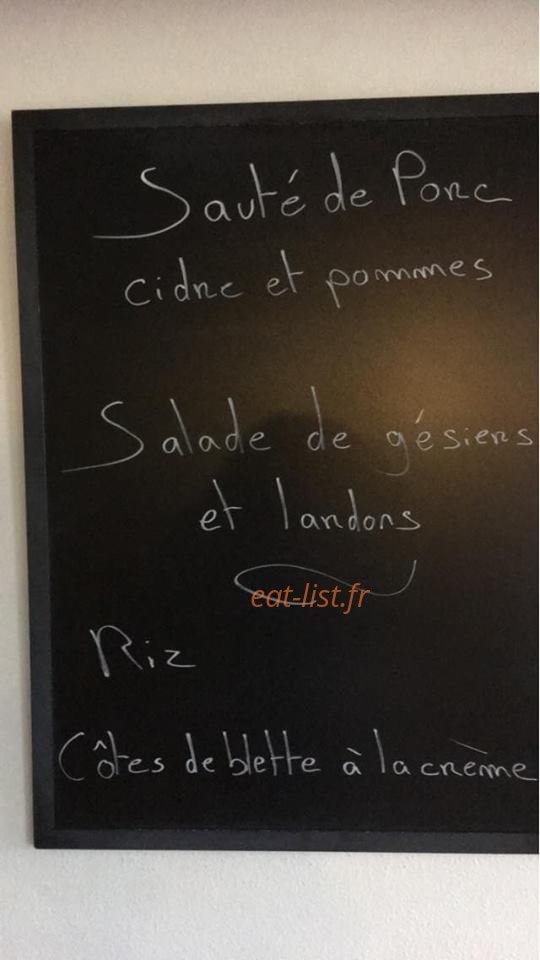 Sauté de Porc
cidre et pommes
Salade de gésiers
et lardons
eat-list.fr
Riz
Côtes de blette à la crème